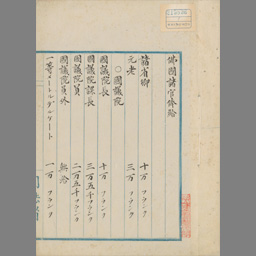 佛國諸官俸給
諸省卿 十万フランク
元老 三万フランク
〇國議院
國議院長 十万フランク
國議院課長 三万五千フランク
國議院員 二万五千フランク
國議院員外 無給
一等メートルデルケート 一万フランク